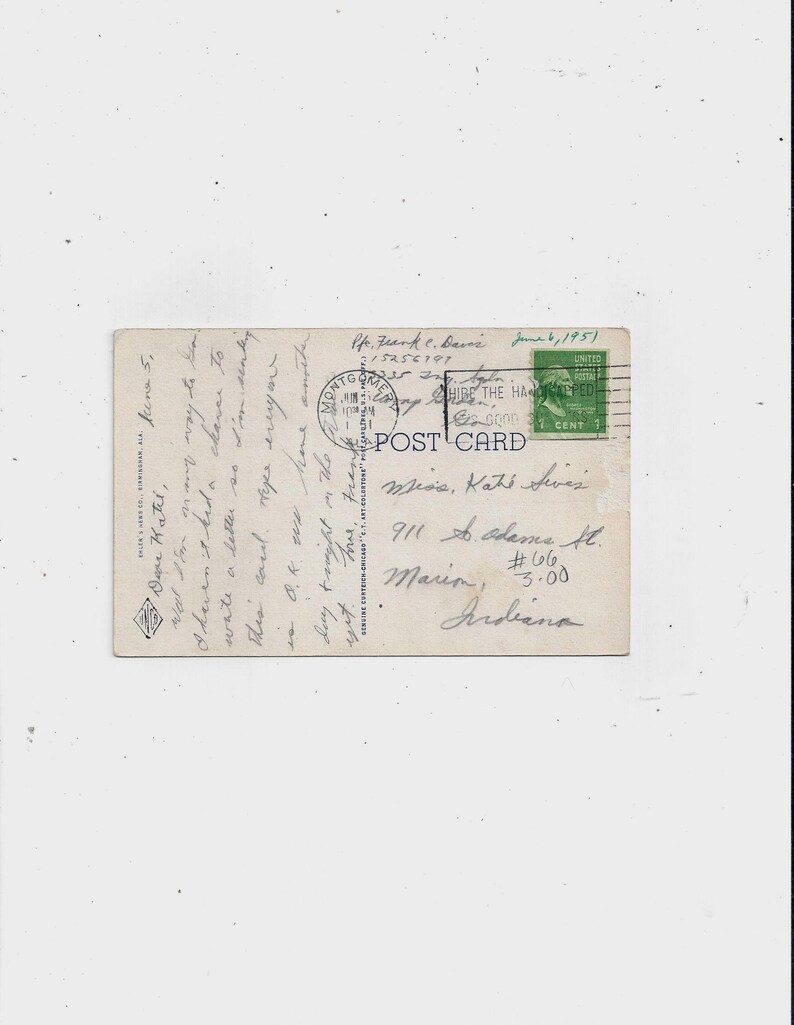 June 5,
Dear Katie,
Well I'm on my way to Ga.
I haven't had a chance to
write a letter so I'm sending
this card. Hope everyone
is O.K. We have another
day & night on the
yet. Love, Frank
EHLER'S NEWS CO., BIRMINGHAM, ALA.
GENUINE CURTEICH-CHICAGO "C.T. ART-COLORTONE" POST CARD (REG. U.S. PAT. OFF.)
Pfc. Frank C. Davis
15256797
Camp Gordon,
Ga.
June 6, 1951
MONTGOMERY
JUN
10 AM
HIRE THE HANDICAPPED
GOOD
UNITED
STATES
POSTAGE
1 CENT 1
POST CARD
Miss, Katie Sivis
911 S. Adams St.
#66
3.00
Marion,
Indiana